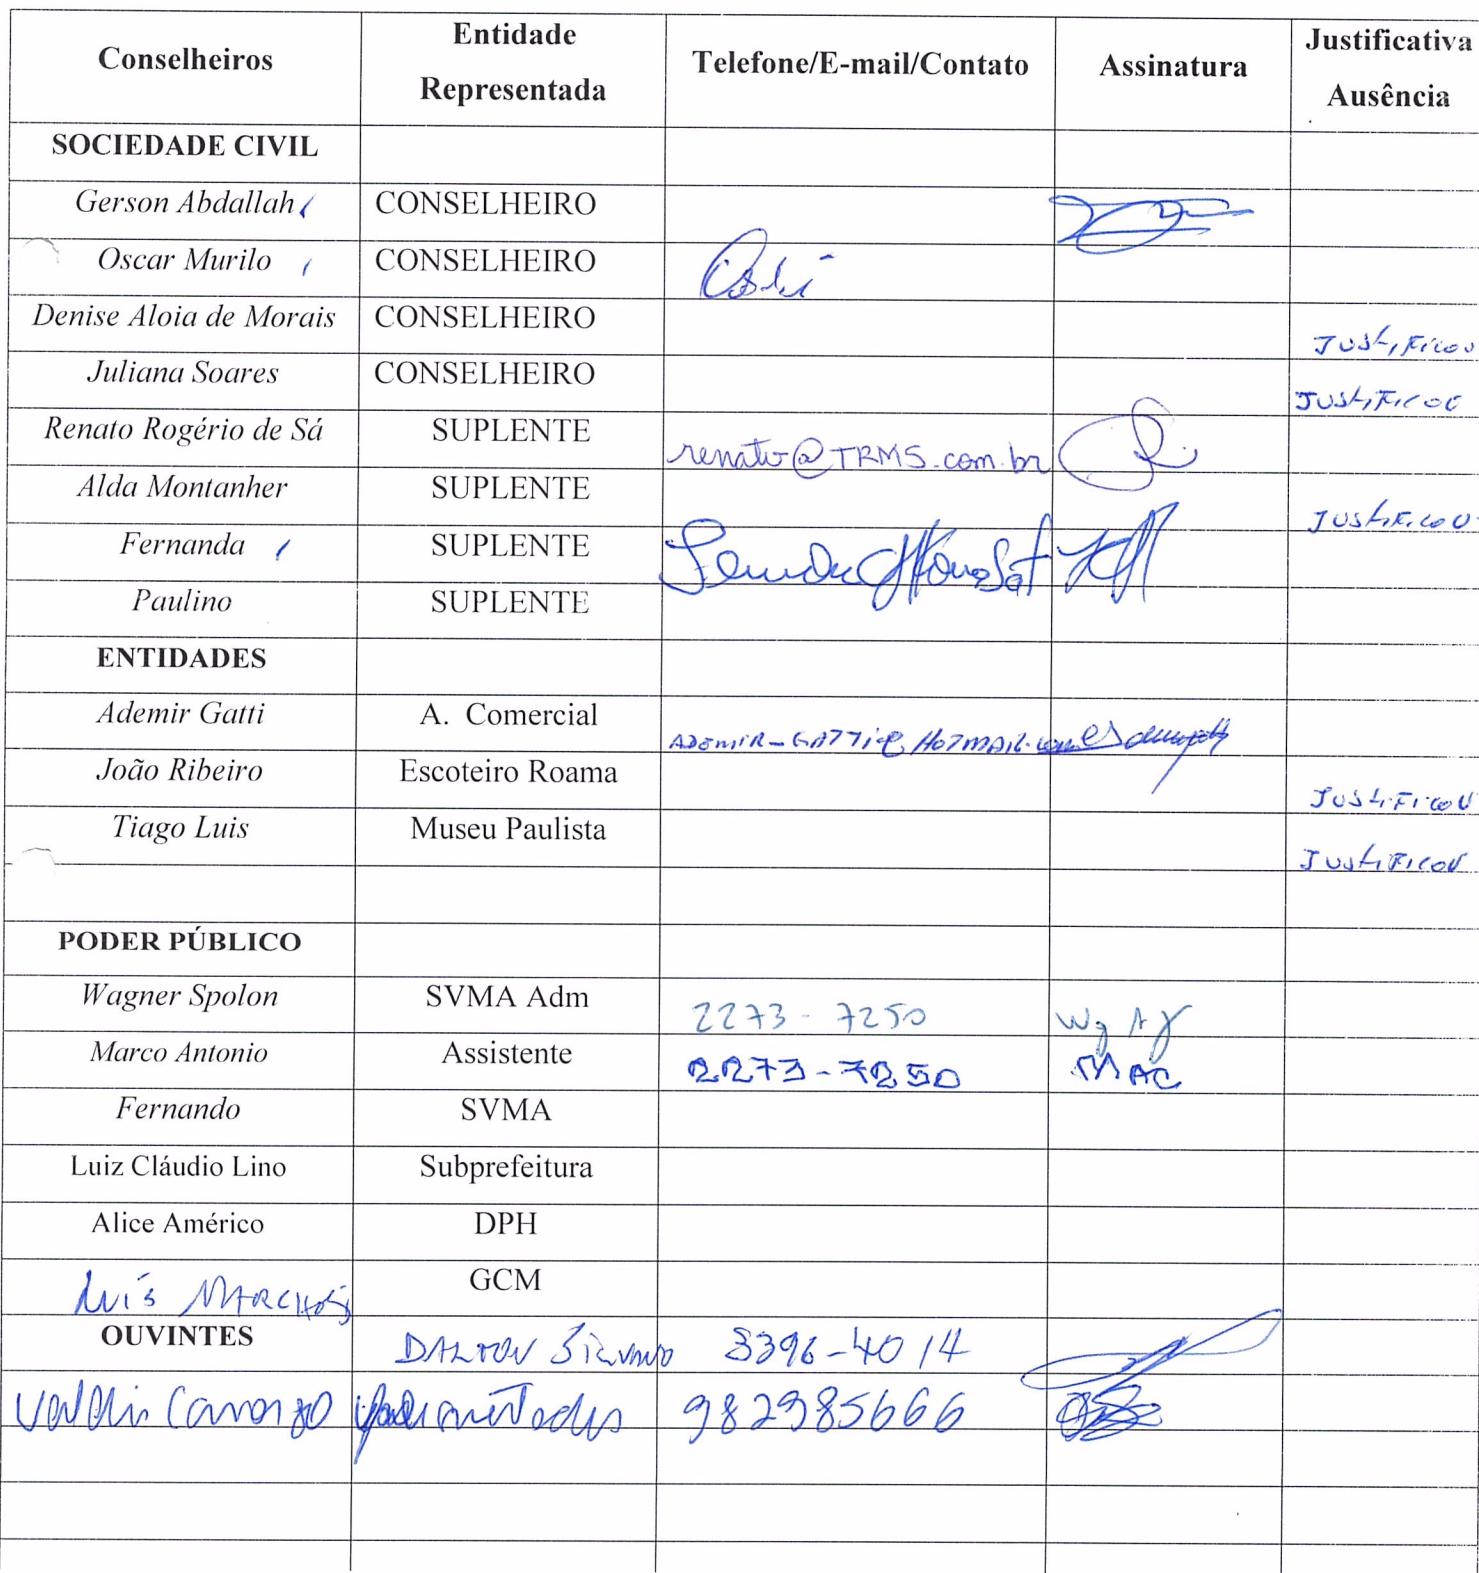 Conselheiros Entidade Representada Telefone/E-mail/Contato Assinatura Justificativa Ausência
SOCIEDADE CIVIL
Gerson Abdallah CONSELHEIRO
Oscar Murilo CONSELHEIRO
Denise Aloia de Morais CONSELHEIRO JUSTIFICOU
Juliana Soares CONSELHEIRO JUSTIFICOU
Renato Rogério de Sá SUPLENTE renato@TRMS.com.br
Alda Montanher SUPLENTE JUSTIFICOU
Fernanda SUPLENTE
Paulino SUPLENTE
ENTIDADES
Ademir Gatti A. Comercial ADEMIR-GATTI@HOTMAIL.com
João Ribeiro Escoteiro Roama JUSTIFICOU
Tiago Luis Museu Paulista JUSTIFICOU
PODER PÚBLICO
Wagner Spolon SVMA Adm 2273-7250
Marco Antonio Assistente 2273-7250 MAC
Fernando SVMA
Luiz Cláudio Lino Subprefeitura
Alice Américo DPH
Luis GCM
OUVINTES DALTON SILVANO 3396-4014
Valdir 982985666